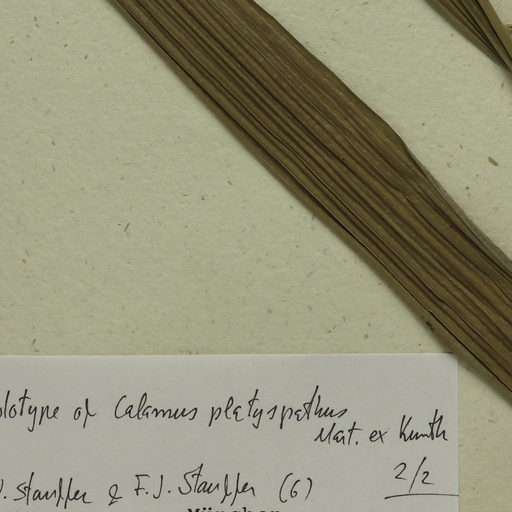 olotype of Calamus platyspathus
Mart. ex Kunth
J. Stauffer & F.J. Stauffer (6)
2/2